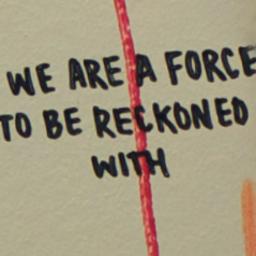 WE ARE A FORCE
TO BE RECKONED
WITH